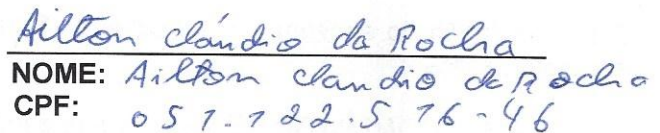 Ailton cláudio da Rocha
NOME: Ailton claudio da Rocha
CPF: 051.122.576-46